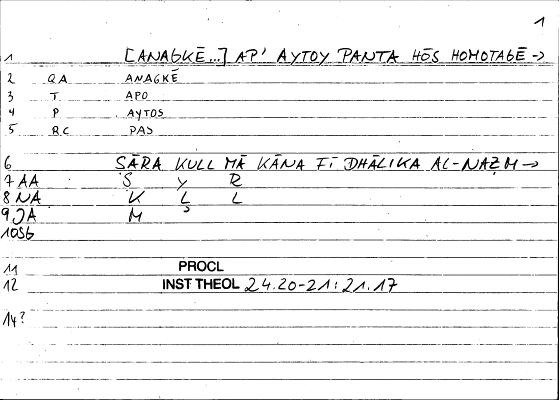 1
1 [ANAGKĒ...] AP' AYTOY PANTA HŌS HOMOTAGĒ →
2 QA ANAGKĒ
3 T. APO
4 P AYTOS
5 RC PAS
6 ṢĀRA KULL MĀ KĀNA FĪ DHĀLIKA AL-NAẒM →
7 AA Ṣ Y R
8 NA K L L
9 JA M
10 SG
11 PROCL
12 INST THEOL 24.20-21: 21.17
14?